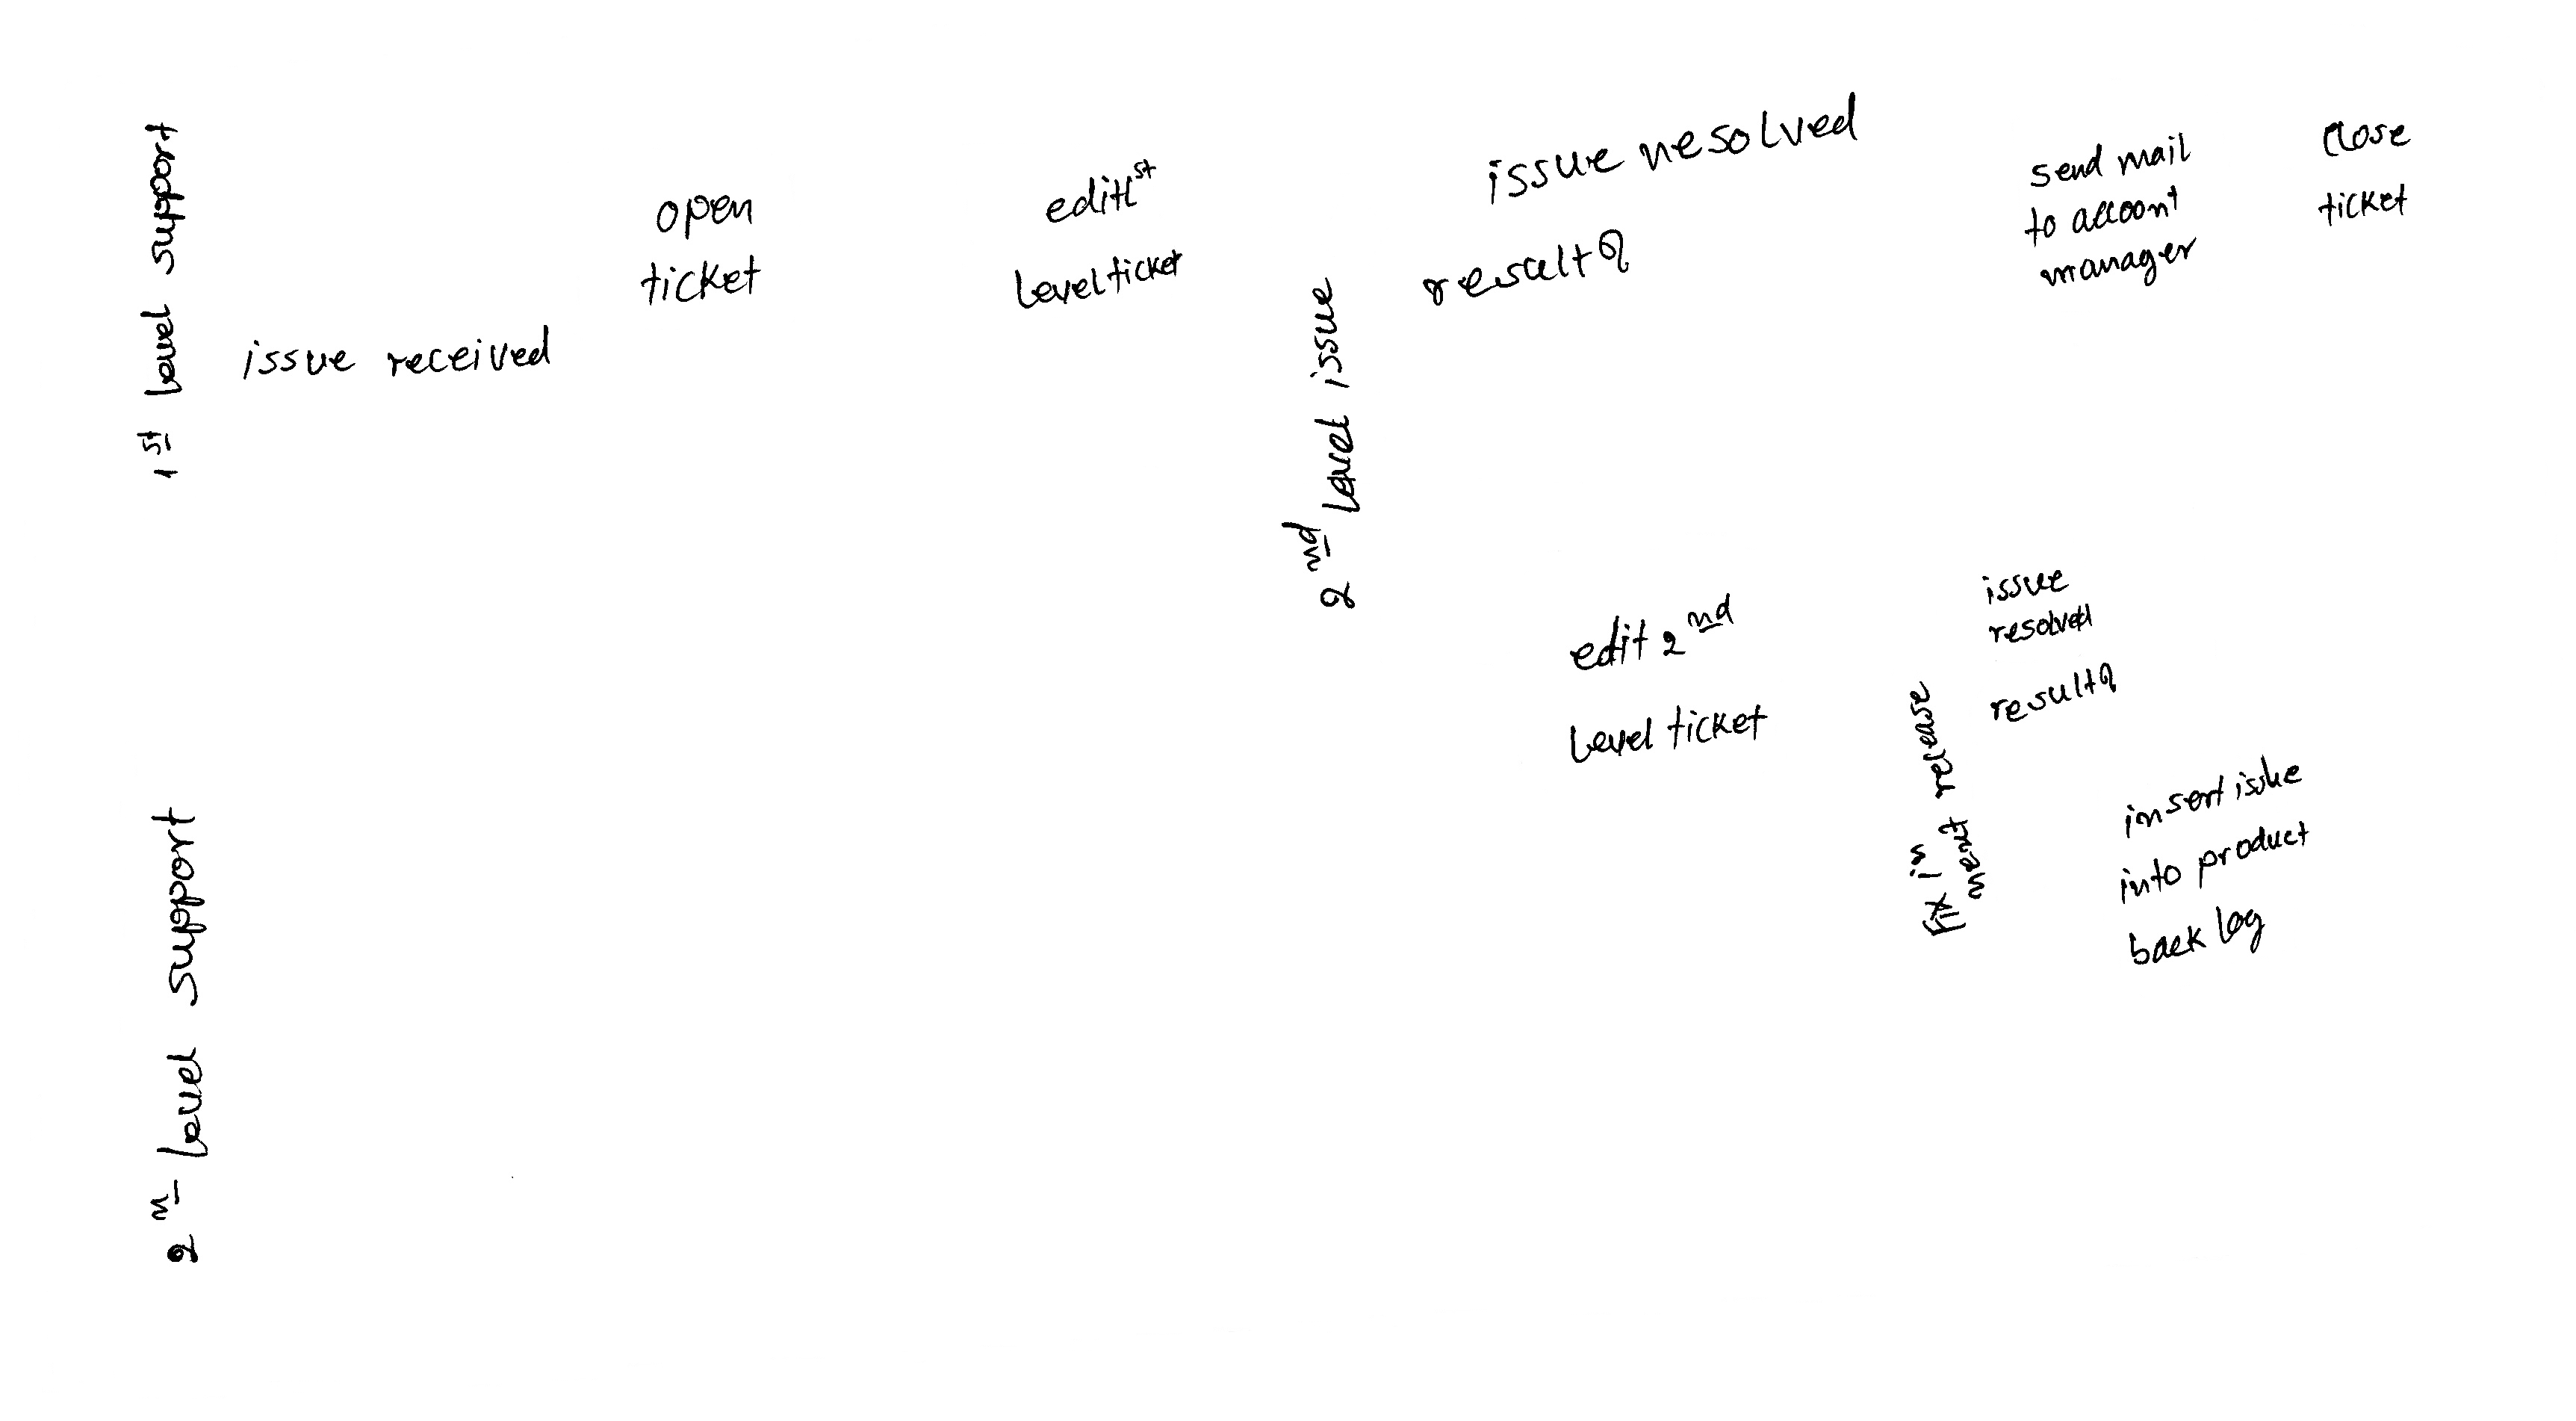 1st level support
issue received
open
ticket
edit1st
level ticket
2nd level issue
issue resolved
result?
send mail
to account
manager
close
ticket
2n level support
edit 2nd
level ticket
fix in
next release
issue
resolved
result?
insert issue
into product
back log